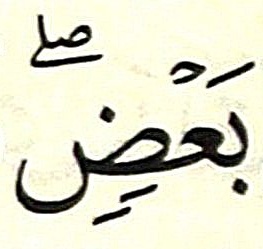 بَعۡضٖۖ